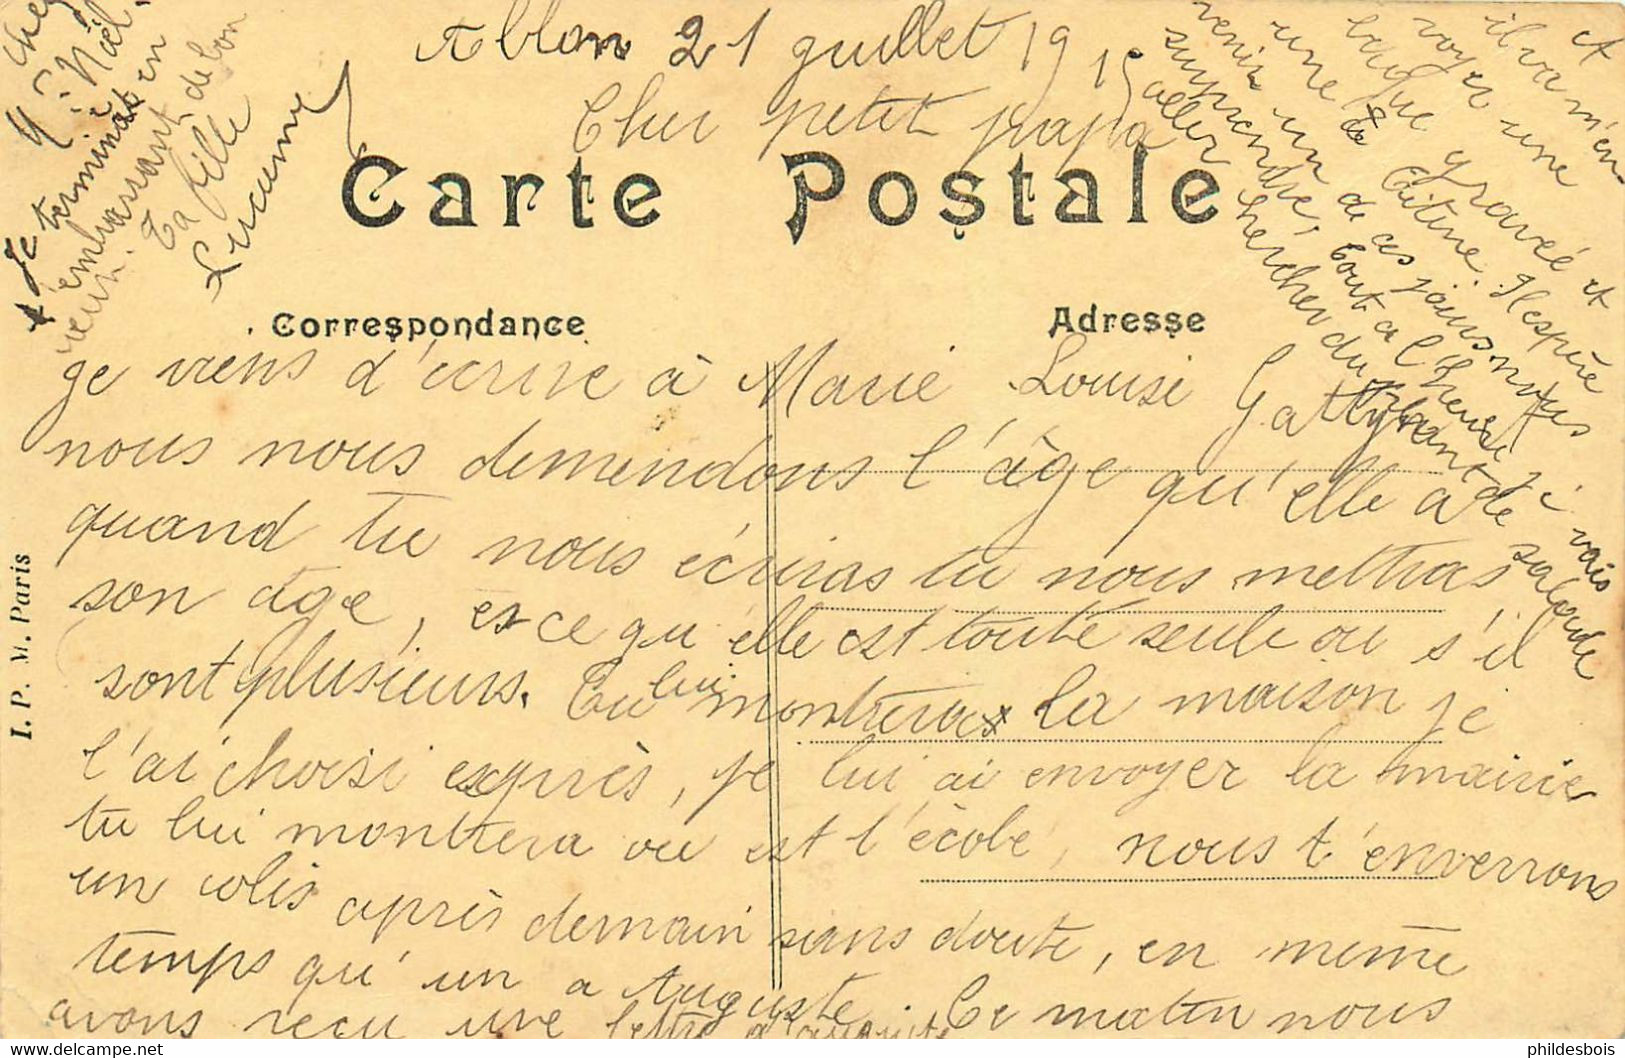 Ablon 21 juillet 1915
Cher petit papa
Carte Postale
Correspondance
Adresse
je viens d'écrire à Marie Louise Gatty
nous nous demendons l'âge qu'elle a
quand tu nous écriras tu nous mettras
son âge, es ce qu'elle est toute seule ou s'il
sont plusieurs. Tu lui montreras la maison je
l'ai choisi exprès, je lui ai envoyer la mairie
tu lui montrera ou est l'école, nous t'enverrons
un colis après demain sans doute, en meme
temps qu'un a Auguste. Ce matin nous
avons reçu une lettre d'Auguste
et
il va m'en-
voyer une
bague gravée et
une à Titine. Il espère
venir un de ces jours nous
surprendre, tout a l'heure je vais
aller chercher du de salade
chez
Mr Noël.
Je termine en
t'embrassant de bon
cœur.
Ta fille
Lucienne
I. P. M. Paris
phildesbois